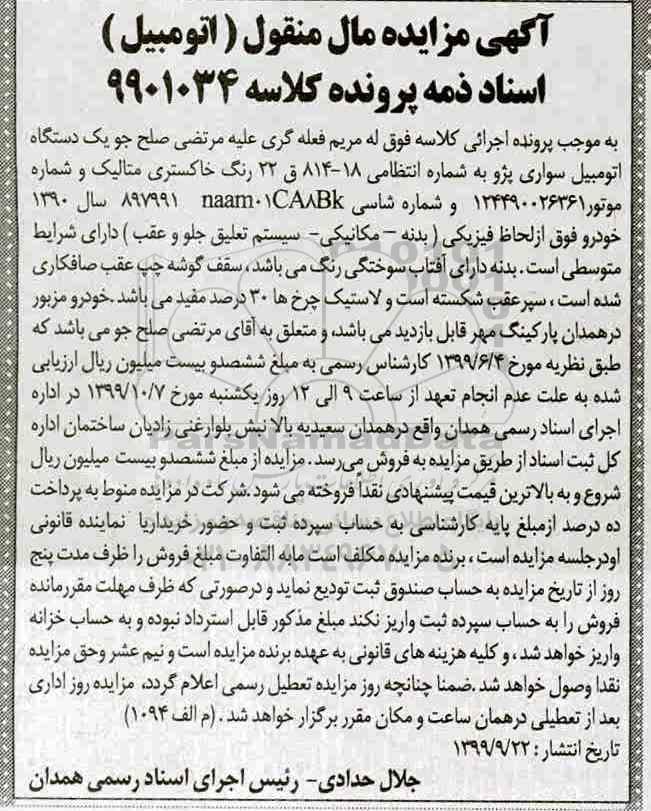 آگهی مزایده مال منقول ( اتومبیل )
اسناد ذمه پرونده کلاسه ۹۹۰۱۰۳۴
به موجب پرونده اجرائی کلاسه فوق له مریم فعله گری علیه مرتضی صلح جو یک دستگاه
اتومبیل سواری پژو به شماره انتظامی ۱۸-۸۱۴ ق ۲۲ رنگ خاکستری متالیک و شماره
موتور۱۲۴۴۹۰۰۲۶۳۶۱ و شماره شاسی naam۰۱CA۸Bk ۸۹۷۹۹۱ سال ۱۳۹۰
خودرو فوق ازلحاظ فیزیکی ( بدنه – مکانیکی- سیستم تعلیق جلو و عقب ) دارای شرایط
متوسطی است . بدنه دارای آفتاب سوختگی رنگ می باشد ، سقف گوشه چپ عقب صافکاری
شده است ، سپرعقب شکسته است و لاستیک چرخ ها ۳۰ درصد مفید می باشد .خودرو مزبور
درهمدان پارکینگ مهر قابل بازدید می باشد، و متعلق به آقای مرتضی صلح جو می باشد که
طبق نظریه مورخ ۱۳۹۹/۶/۴ کارشناس رسمی به مبلغ ششصدو بیست میلیون ریال ارزیابی
شده به علت عدم انجام تعهد از ساعت ۹ الی ۱۲ روز یکشنبه مورخ ۱۳۹۹/۱۰/۷ در اداره
اجرای اسناد رسمی همدان واقع درهمدان سعیدیه بالا نبش بلوارغنی زادیان ساختمان اداره
کل ثبت اسناد از طریق مزایده به فروش می‌رسد . مزایده از مبلغ ششصدو بیست میلیون ریال
شروع و به بالاترین قیمت پیشنهادی نقدا فروخته می شود .شرکت در مزایده منوط به پرداخت
ده درصد ازمبلغ پایه کارشناسی به حساب سپرده ثبت و حضور خریداریا نماینده قانونی
اودرجلسه مزایده است ، برنده مزایده مکلف است مابه التفاوت مبلغ فروش را ظرف مدت پنج
روز از تاریخ مزایده به حساب صندوق ثبت تودیع نماید و درصورتی که ظرف مهلت مقررمانده
فروش را به حساب سپرده ثبت واریز نکند مبلغ مذکور قابل استرداد نبوده و به حساب خزانه
واریز خواهد شد ، و کلیه هزینه های قانونی به عهده برنده مزایده است و نیم عشر وحق مزایده
نقدا وصول خواهد شد .ضمنا چنانچه روز مزایده تعطیل رسمی اعلام گردد، مزایده روز اداری
بعد از تعطیلی درهمان ساعت و مکان مقرر برگزار خواهد شد . (م الف ۱۰۹۴)
تاریخ انتشار : ۱۳۹۹/۹/۲۲
جلال حدادی- رئیس اجرای اسناد رسمی همدان